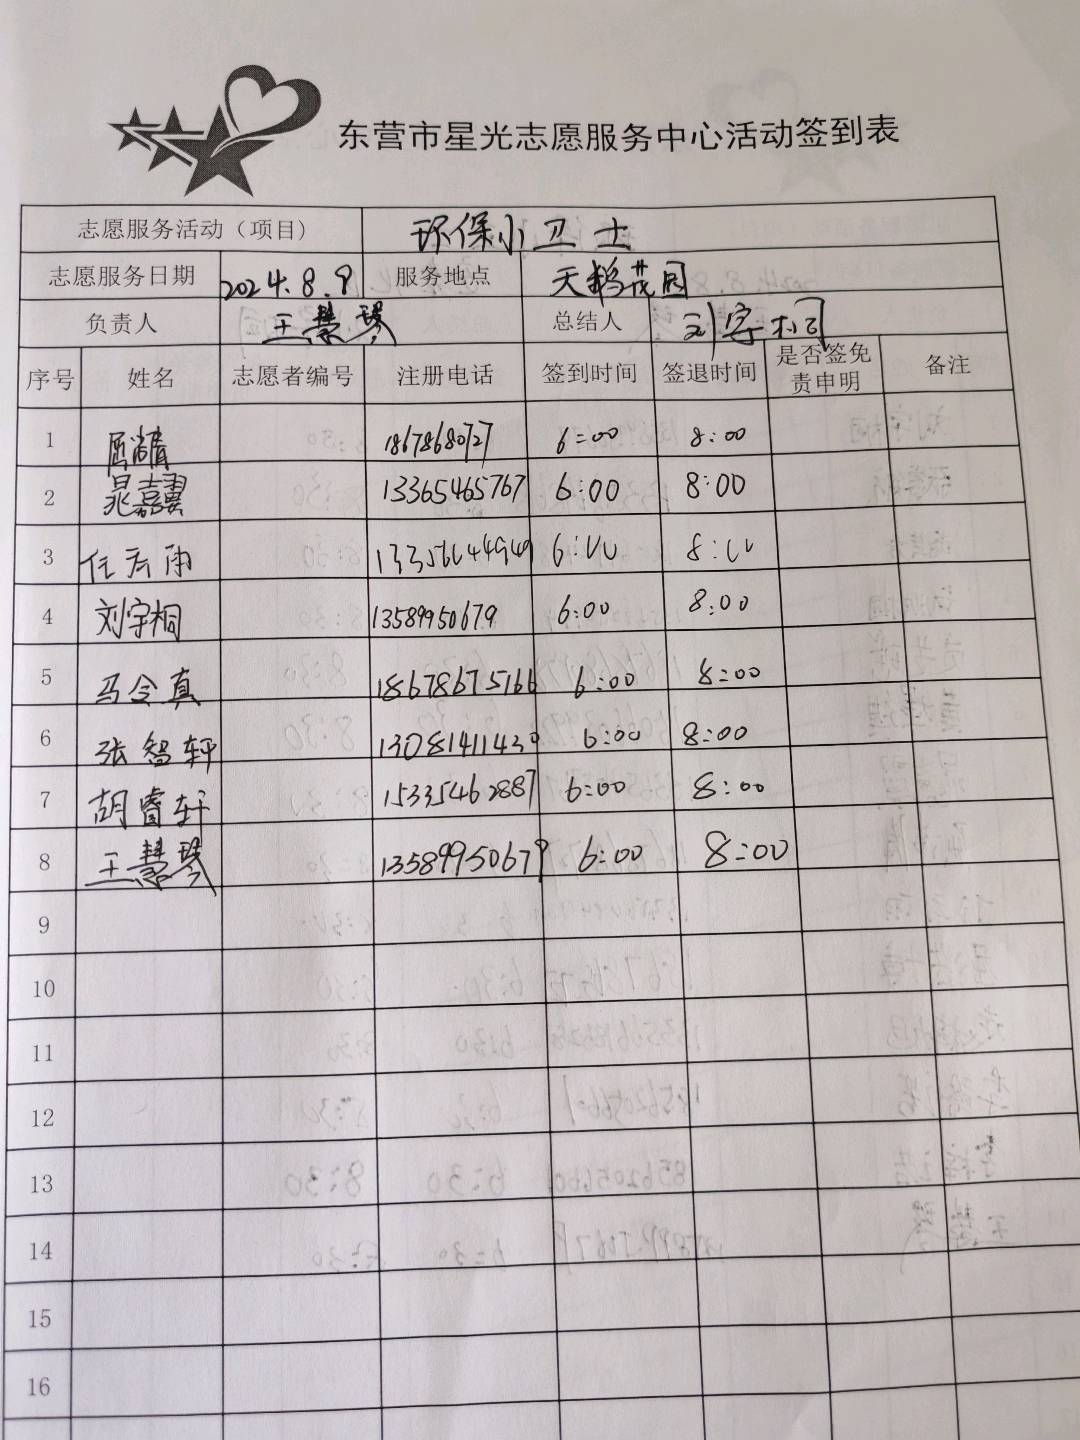 东营市星光志愿服务中心活动签到表
志愿服务活动（项目） 环保小卫士
志愿服务日期 2024.8.9 服务地点 天鹅花园
负责人 王慧琴 总结人 刘宇桐
序号 姓名 志愿者编号 注册电话 签到时间 签退时间 是否签免责申明 备注
1 18678680727 6:00 8:00
2 晁嘉翼 13365465767 6:00 8:00
3 任云雨 13356644949 6:00 8:00
4 刘宇桐 13589950679 6:00 8:00
5 马令真 18678675166 6:00 8:00
6 张智轩 13081411430 6:00 8:00
7 胡睿轩 15335462887 6:00 8:00
8 王慧琴 13589950679 6:00 8:00
9
10
11
12
13
14
15
16